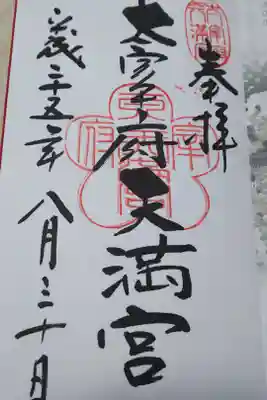 奉拝
太宰府天満宮
平成二十五年八月三十日